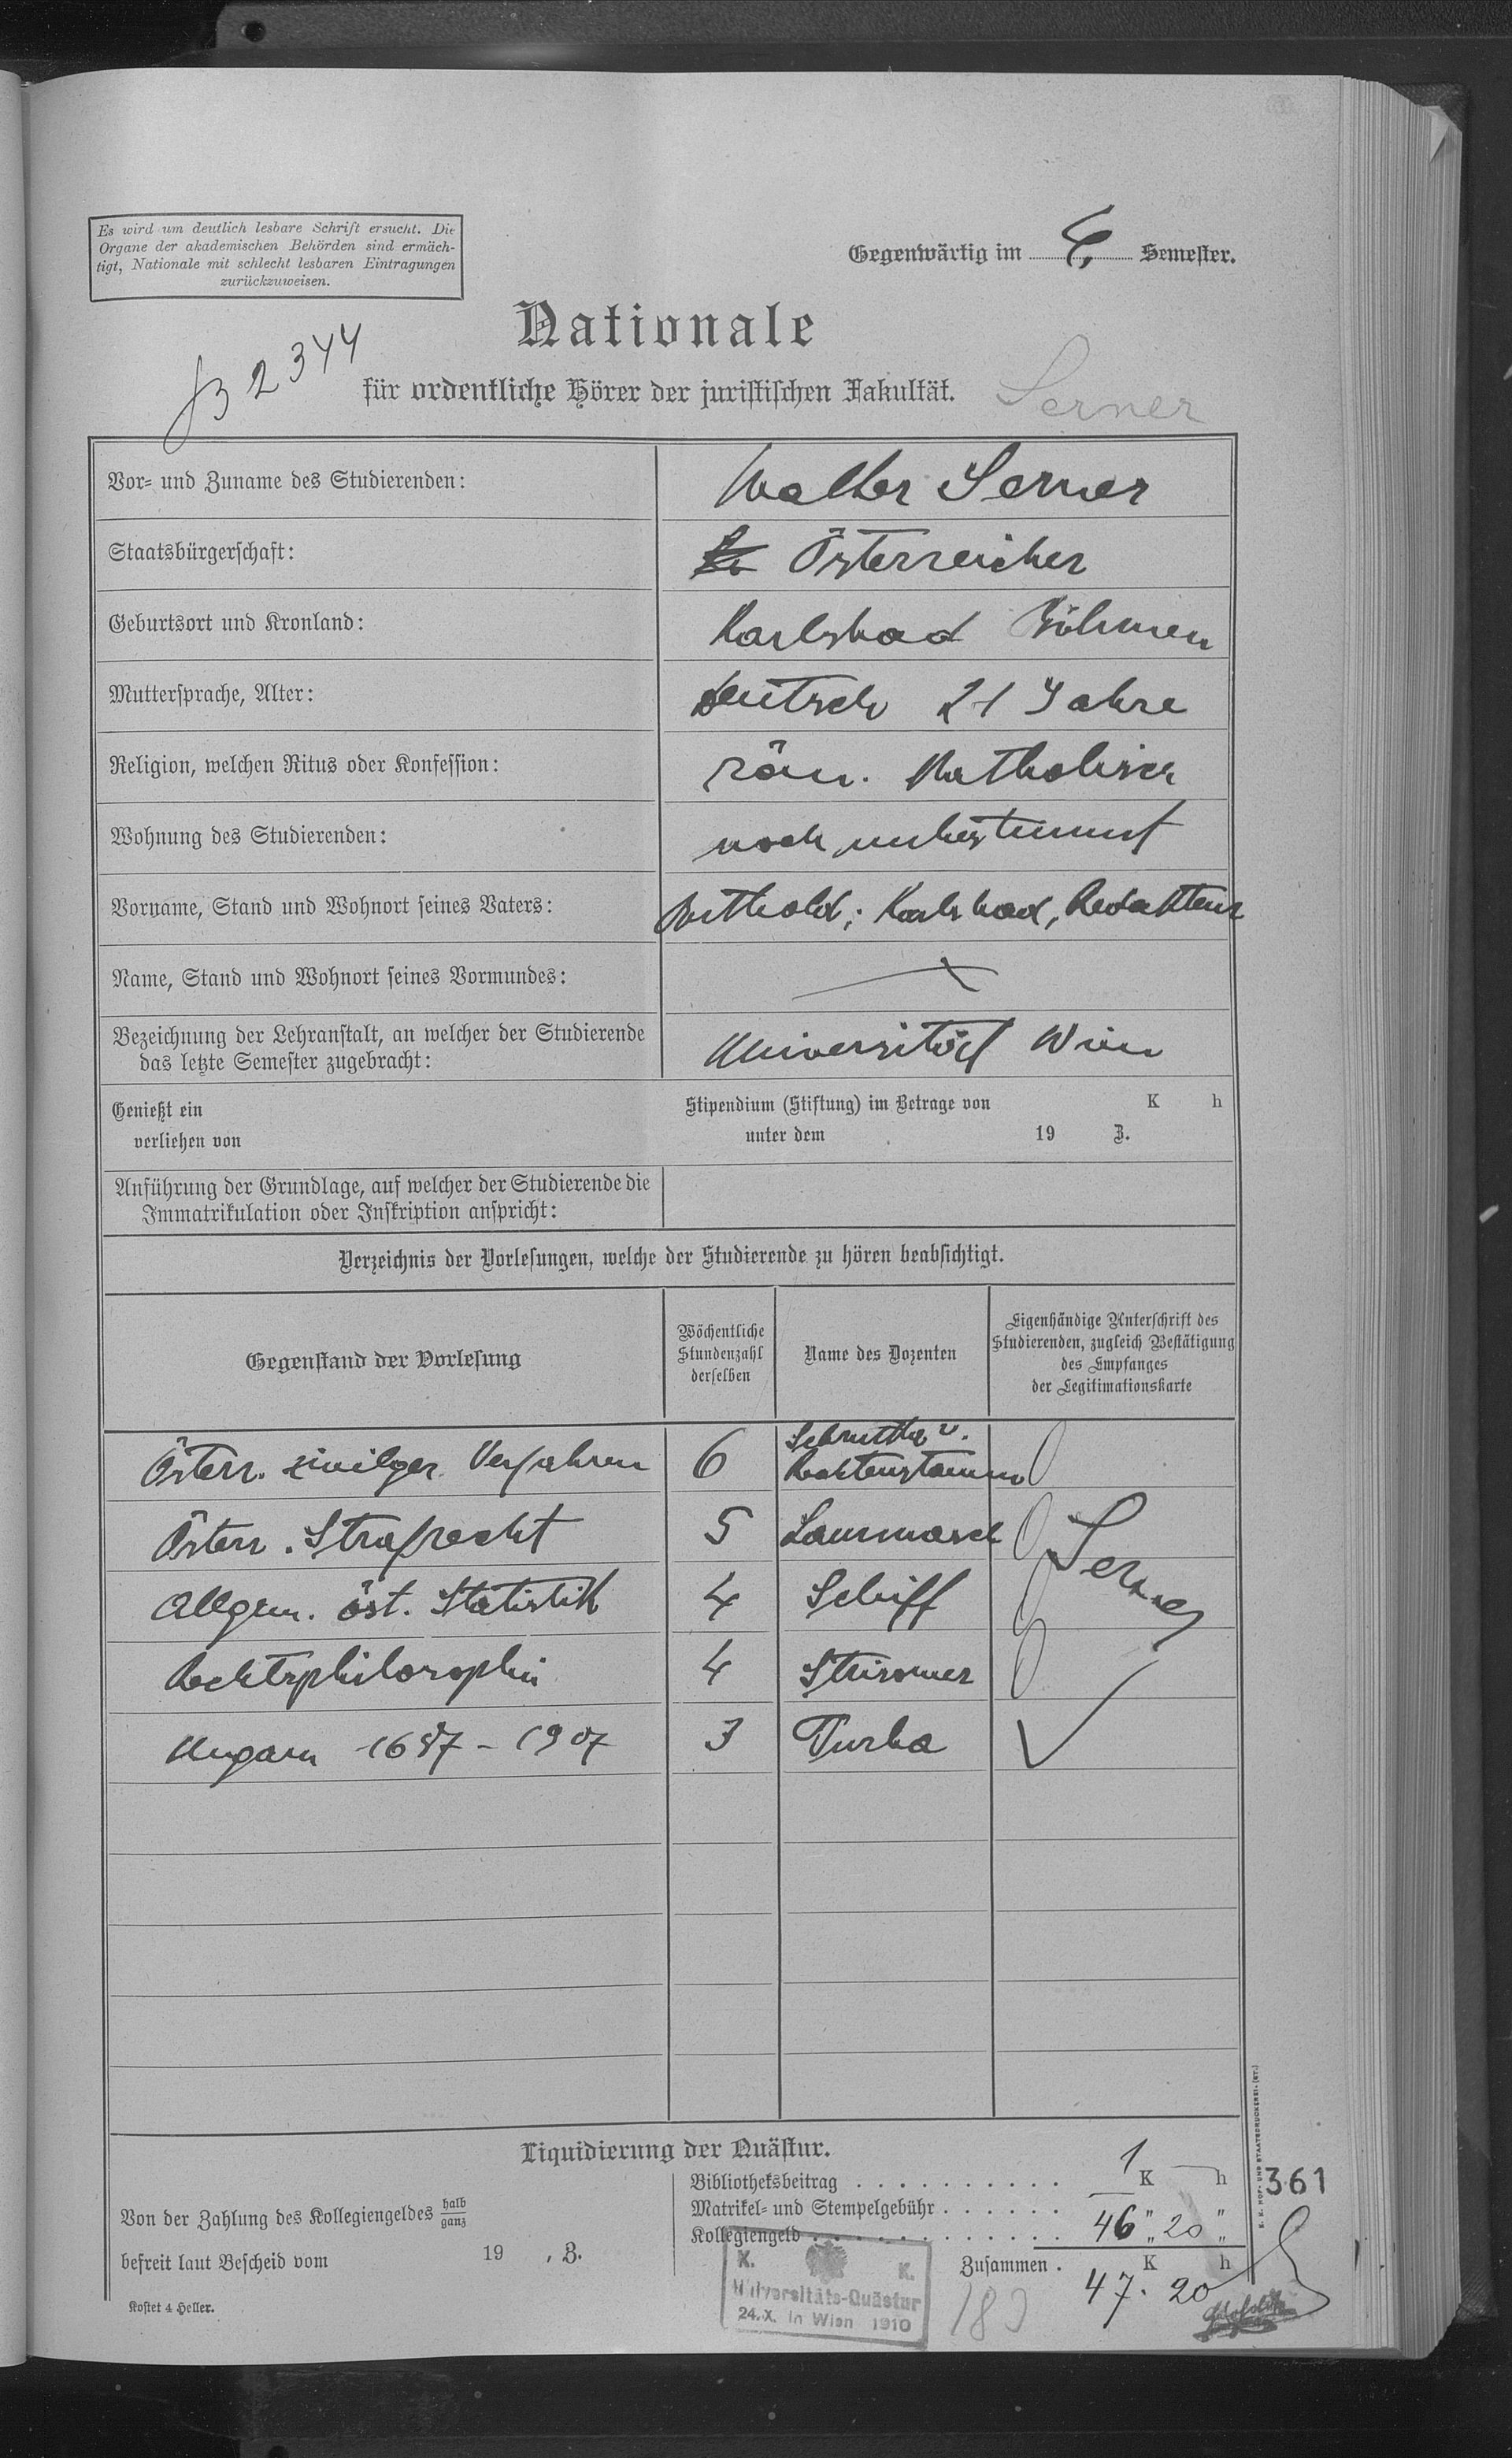 Es wird um deutlich lesbare Schrift ersucht. Die
Organe der akademischen Behörden sind ermäch-
tigt, Nationale mit schlecht lesbaren Eintragungen
zurückzuweisen.
Gegenwärtig im Semester.
Nationale
2344
für ordentliche Hörer der juristischen Fakultät.
Serner
Vor- und Zuname des Studierenden: Walter Serner
Staatsbürgerschaft: Österreicher
Geburtsort und Kronland: Karlsbad Böhmen
Muttersprache, Alter: deutsch 21 Jahre
Religion, welchen Ritus oder Konfession: röm. Katholisch
Wohnung des Studierenden: noch unbestimmt
Vorname, Stand und Wohnort seines Vaters: Berthold; Karlsbad, Redakteur
Name, Stand und Wohnort seines Vormundes:
Bezeichnung der Lehranstalt, an welcher der Studierende
das letzte Semester zugebracht: Universität Wien
Genießt ein Stipendium (Stiftung) im Betrage von K h
verliehen von unter dem 19 Z.
Anführung der Grundlage, auf welcher der Studierende die
Immatrikulation oder Inskription anspricht:
Verzeichnis der Vorlesungen, welche der Studierende zu hören beabsichtigt.
Gegenstand der Vorlesung
Wöchentliche
Stundenzahl
derselben
Name des Dozenten
Eigenhändige Unterschrift des
Studierenden, zugleich Bestätigung
des Empfanges
der Legitimationskarte
Österr. zivilger. Verfahren 6 Schrutka v.
Rechtenstamm
Österr. Strafrecht 5 Lammasch
Serner
Allgem. öst. Statistik 4 Schiff
Rechtsphilosophie 4 Strisower
Ungarn 1687-1907 3 Turba
Liquidierung der Quästur.
Von der Zahlung des Kollegiengeldes halb
ganz
befreit laut Bescheid vom 19 , Z.
Kostet 4 Heller.
Bibliotheksbeitrag . . . . . . . . . . . 1 K h
Matrikel- und Stempelgebühr . . . . . .
Kollegiengeld . . . . . . . . . . . . . 46 " 20 "
Zusammen . K h
47. 20
K. K.
Universitäts-Quästur
24.X. in Wien 1910
K. K. HOF- UND STAATSDRUCKEREI. (ST.)
361